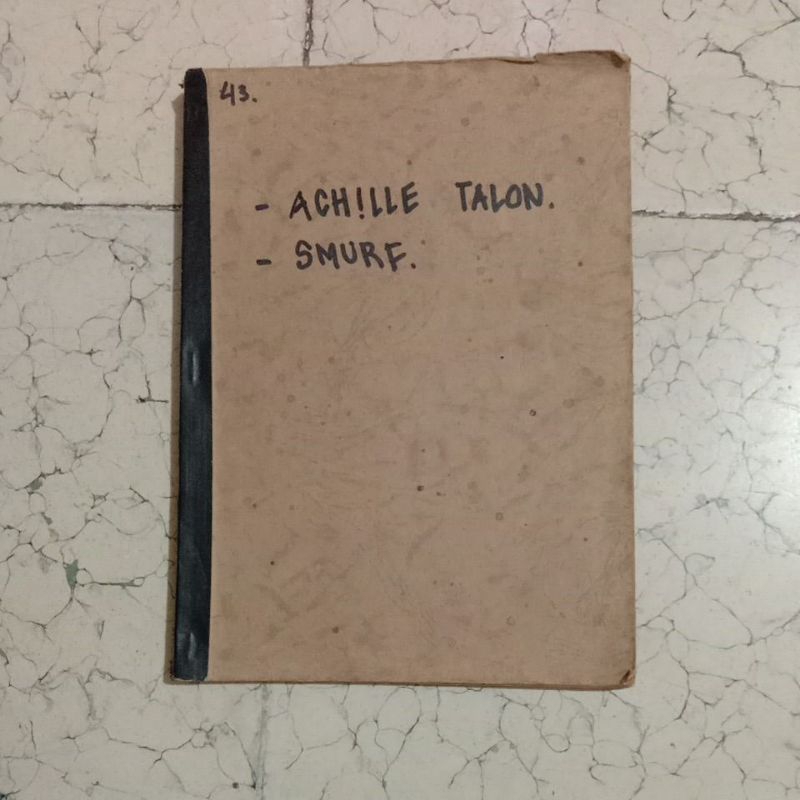 43.
- ACH!LLE TALON.
- SMURF.